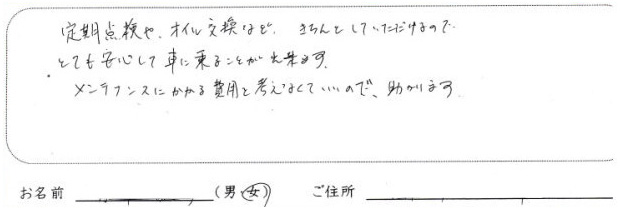 定期点検や、オイル交換など、きちんとしていただけるので
とても安心して車に乗ることが出来ます。
メンテナンスにかかる費用も考えなくていいので、助かります
お名前 (男・女) ご住所